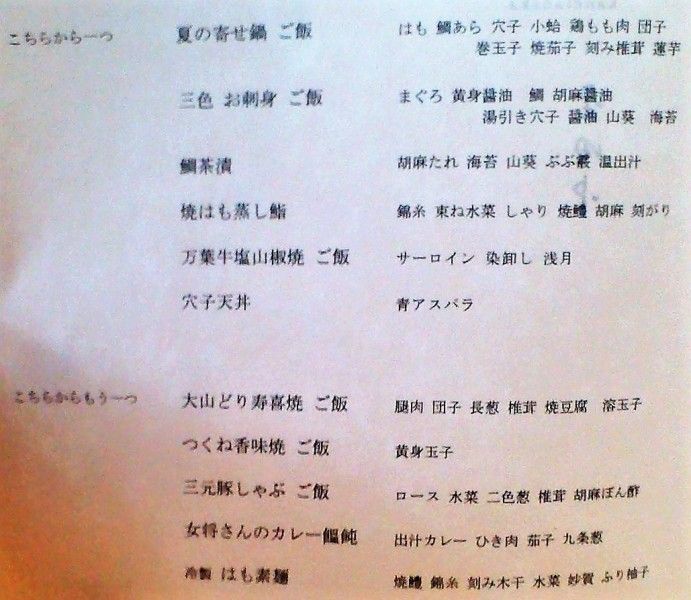 こちらから一つ 夏の寄せ鍋 ご飯 はも 鯛あら 穴子 小蛤 鶏もも肉 団子
巻玉子 焼茄子 刻み椎茸 蓮芋
三色 お刺身 ご飯 まぐろ 黄身醤油 鯛 胡麻醤油
湯引き穴子 醤油 山葵 海苔
鯛茶漬 胡麻たれ 海苔 山葵 ぶぶ霰 温出汁
焼はも蒸し鮨 錦糸 束ね水菜 しゃり 焼鱧 胡麻 刻がり
万葉牛塩山椒焼 ご飯 サーロイン 染卸し 浅月
穴子天丼 青アスパラ
こちらからもう一つ 大山どり寿喜焼 ご飯 腿肉 団子 長葱 椎茸 焼豆腐 溶玉子
つくね香味焼 ご飯 黄身玉子
三元豚しゃぶ ご飯 ロース 水菜 二色葱 椎茸 胡麻ぽん酢
女将さんのカレー饂飩 出汁カレー ひき肉 茄子 九条葱
冷製 はも素麺 焼鱧 錦糸 刻み木干 水菜 妙賀 ふり柚子